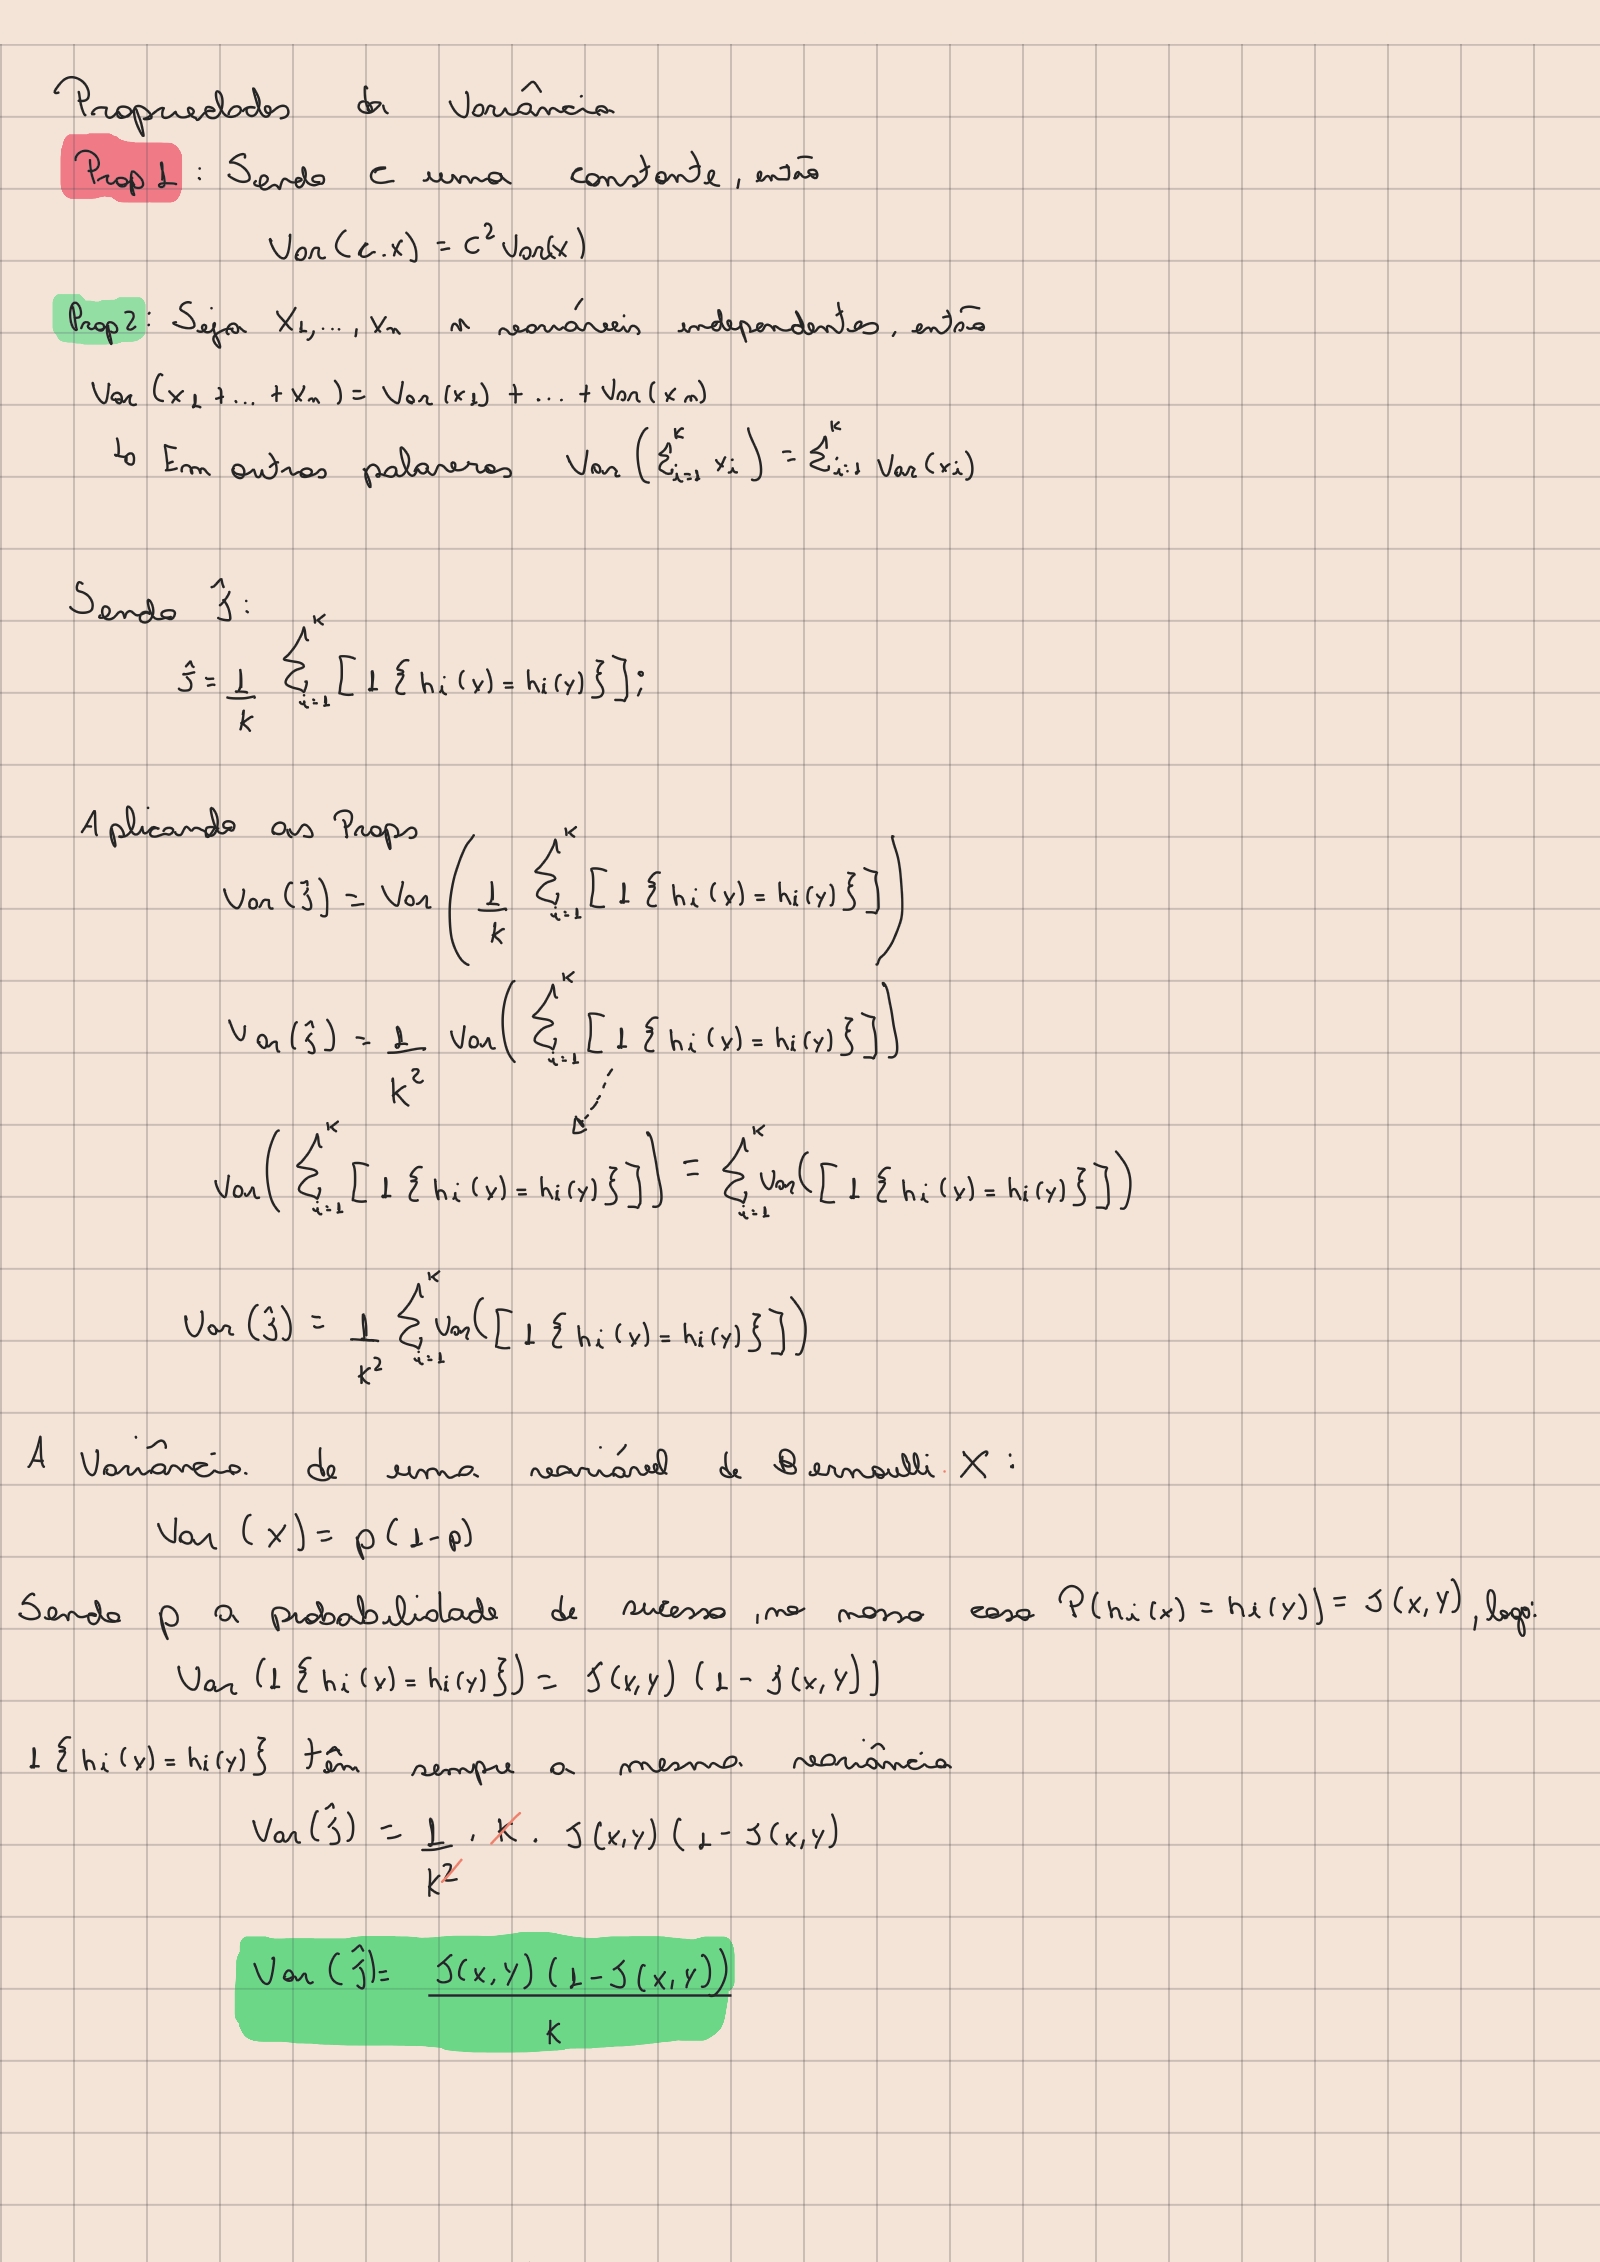 Propriedades da Variância
Prop 1 : Sendo c uma constante, então
Var(c.x) = c² Var(x)
Prop 2 : Seja X₁, ..., Xₙ n variáveis independentes, então
Var (x₁ + ... + xₙ) = Var(x₁) + ... + Var(xₙ)
↳ Em outras palavras Var (∑ᵢ₌₁ᴷ xᵢ) = ∑ᵢ₌₁ᴷ Var(xᵢ)
Sendo Ĵ:
Ĵ = 1/K ∑ᵢ₌₁ᴷ [1{hᵢ(x) = hᵢ(y)}];
Aplicando as Props
Var(Ĵ) = Var (1/K ∑ᵢ₌₁ᴷ [1{hᵢ(x) = hᵢ(y)}])
Var(Ĵ) = 1/K² Var(∑ᵢ₌₁ᴷ [1{hᵢ(x) = hᵢ(y)}])
Var(∑ᵢ₌₁ᴷ [1{hᵢ(x) = hᵢ(y)}]) = ∑ᵢ₌₁ᴷ Var([1{hᵢ(x) = hᵢ(y)}])
Var(Ĵ) = 1/K² ∑ᵢ₌₁ᴷ Var([1{hᵢ(x) = hᵢ(y)}])
A Variância de uma variável de Bernoulli X :
Var (x) = p(1-p)
Sendo p a probabilidade de sucesso, no nosso caso P(hᵢ(x) = hᵢ(y)) = J(x,y), logo:
Var (1{hᵢ(x) = hᵢ(y)}) = J(x,y) (1 - J(x,y))
1{hᵢ(x) = hᵢ(y)} têm sempre a mesma variância
Var(Ĵ) = 1/K² . K . J(x,y) (1 - J(x,y)
Var(Ĵ) = J(x,y) (1 - J(x,y)) / K